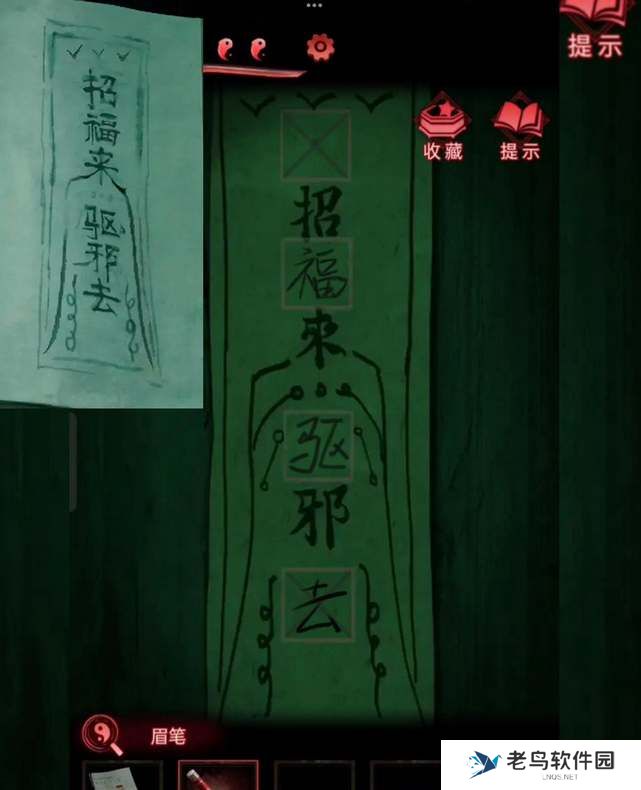 招福来
驱邪去
提示
收藏
提示
招
福
來
驱
邪
去
眉笔
老鸟软件园
LNQS.NET